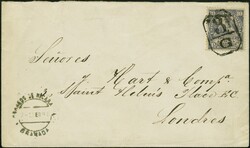 Señores
J Hart & Comp.ª
Saint Helen's Place E.C
Londres
D